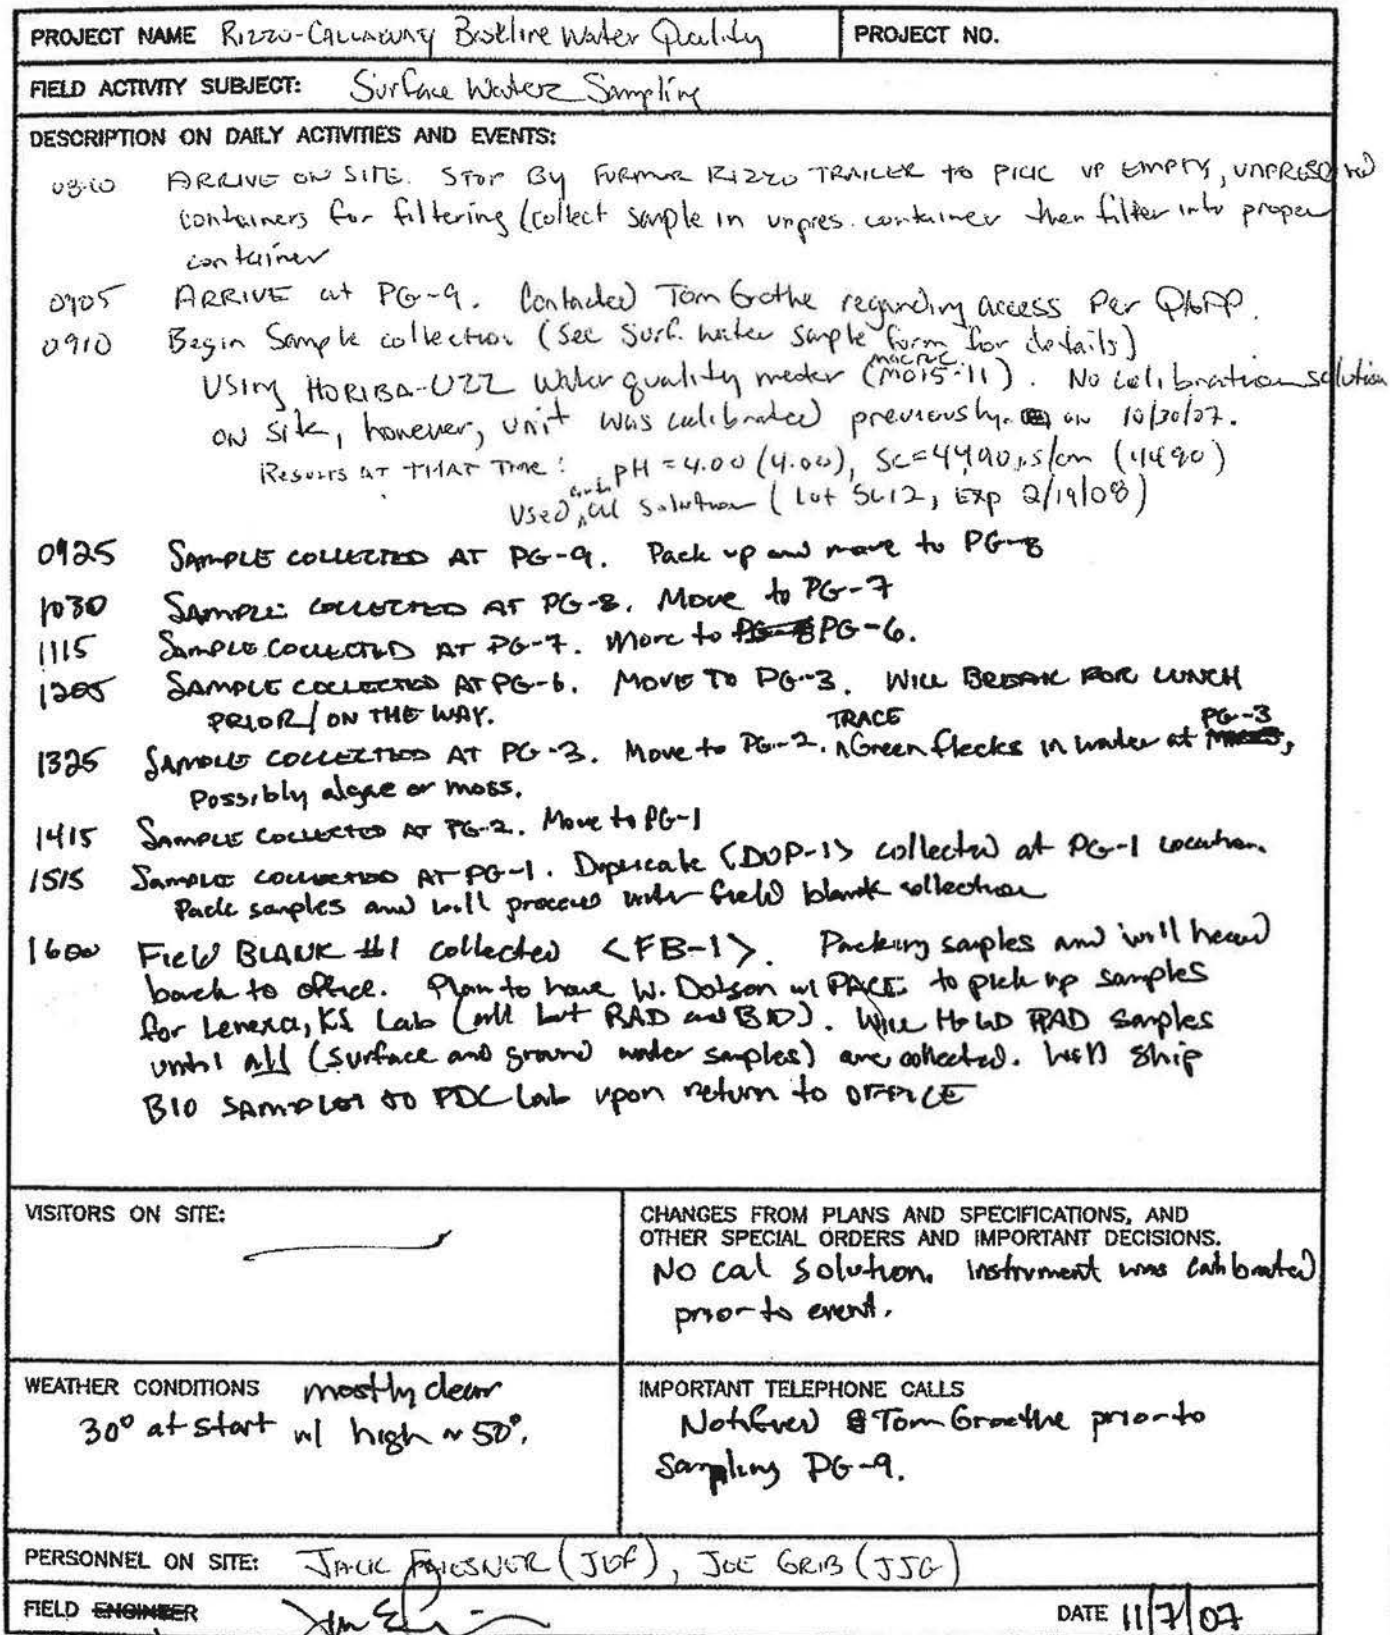 PROJECT NAME Rizzo-Callaway Baseline Water Quality PROJECT NO.
FIELD ACTIVITY SUBJECT: Surface Water Sampling
DESCRIPTION ON DAILY ACTIVITIES AND EVENTS:
ARRIVE ON SITE. STOP BY FORMER RIZZO TRAILER to PICK UP EMPTY, UNPRESERVED
containers for filtering (collect sample in unpres. container then filter into proper
container
0905 ARRIVE at PG-9. Contacted Tom Grothe regarding access Per QAPP.
0910 Begin Sample collection (See Surf. water sample form for details)
MACTEC
Using HORIBA-U22 Water quality meter (MO15-11). No calibration solution
ON site, however, unit was calibrated previously. on 10/30/07.
Results at THAT TIME: pH = 4.00 (4.00), SC=4490 µs/cm (4490)
Used auto cal Solution (Lot SC12, Exp 2/19/08)
0925 SAMPLE COLLECTED AT PG-9. Pack up and move to PG-8
1030 SAMPLE COLLECTED AT PG-8. Move to PG-7
1115 SAMPLE COLLECTED AT PG-7. Move to PG-8 PG-6.
1205 SAMPLE COLLECTED AT PG-6. MOVE TO PG-3. WILL BREAK FOR LUNCH
PRIOR/ON THE WAY.
TRACE PG-3
1325 SAMPLE COLLECTED AT PG-3. Move to PG-2. ^Green flecks in water at
Possibly algae or moss.
1415 SAMPLE COLLECTED AT PG-2. Move to PG-1
1515 SAMPLE COLLECTED AT PG-1. Duplicate <DUP-1> collected at PG-1 location.
Pack samples and will proceed with field blank collection
1600 Field BLANK #1 collected <FB-1>. Packing samples and will head
back to office. Plan to have W. Dotson w/ PACE to pick up samples
for Lenexa, KS Lab (all but RAD and BIO). Will HOLD RAD samples
until all (surface and ground water samples) are collected. Will ship
BIO SAMPLES to PDC Lab upon return to OFFICE
VISITORS ON SITE:
CHANGES FROM PLANS AND SPECIFICATIONS, AND
OTHER SPECIAL ORDERS AND IMPORTANT DECISIONS.
No cal solution. Instrument was calibrated
prior to event.
WEATHER CONDITIONS mostly clear
30° at start w/ high ~ 50°.
IMPORTANT TELEPHONE CALLS
Notified Tom Groethe prior to
Sampling PG-9.
PERSONNEL ON SITE: JACK FAIESNER (JEF), JOE GRIB (JJG)
FIELD ENGINEER DATE 11/7/07